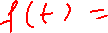 f(t) =